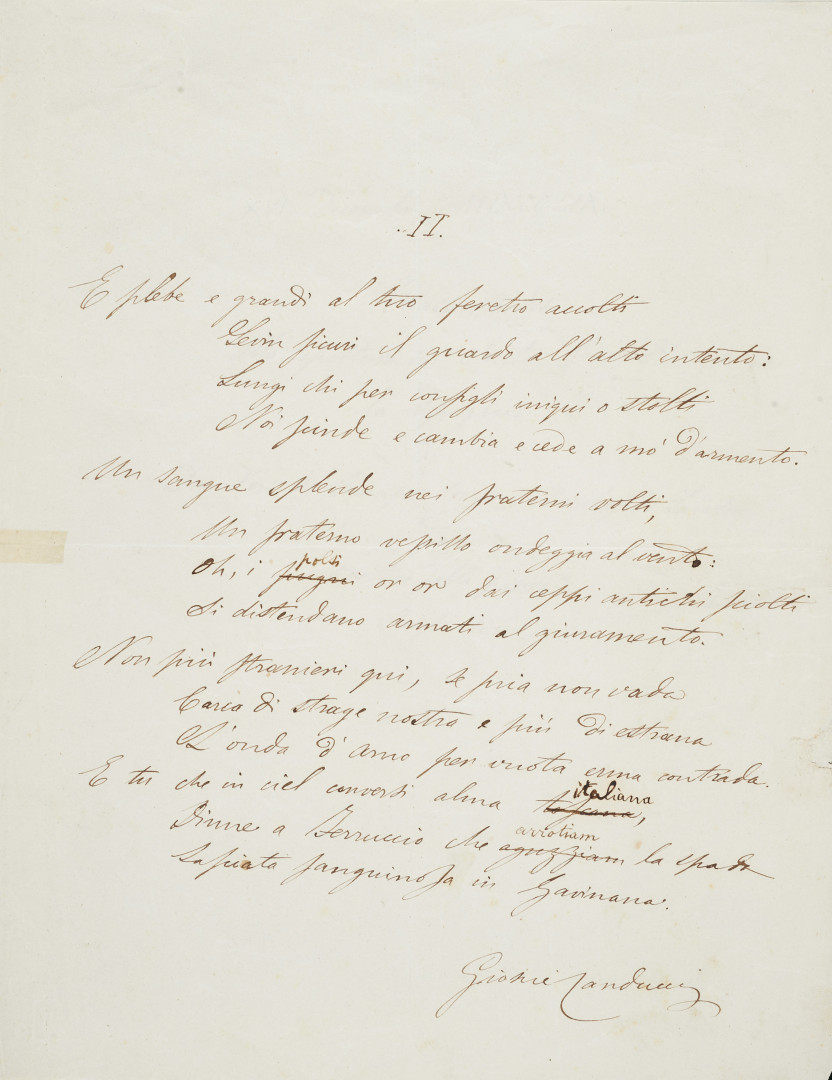 .II.
E plebe e grandi al tuo feretro accolti
Levin sicuri il guardo all'alto intento:
Lungi chi per consigli iniqui o stolti
Noi scinde e cambia e cede a mo' d'armento.
Un sangue splende nei fraterni volti,
Un fraterno vessillo ondeggia al vento:
polsi
Oh, i pugni or or dai ceppi antichi sciolti
Si distendano armati al giuramento.
Non più stranieri qui, se pria non vada
Carco di strage nostra e più di estrana
L'onda d'Arno per vuota erma contrada.
italiana
E tu che in ciel conversi alma toscana,
arrotiam
Dinne a Ferruccio che aguzziam la spada
Lasciata sanguinosa in Gavinana.
Giosuè Carducci